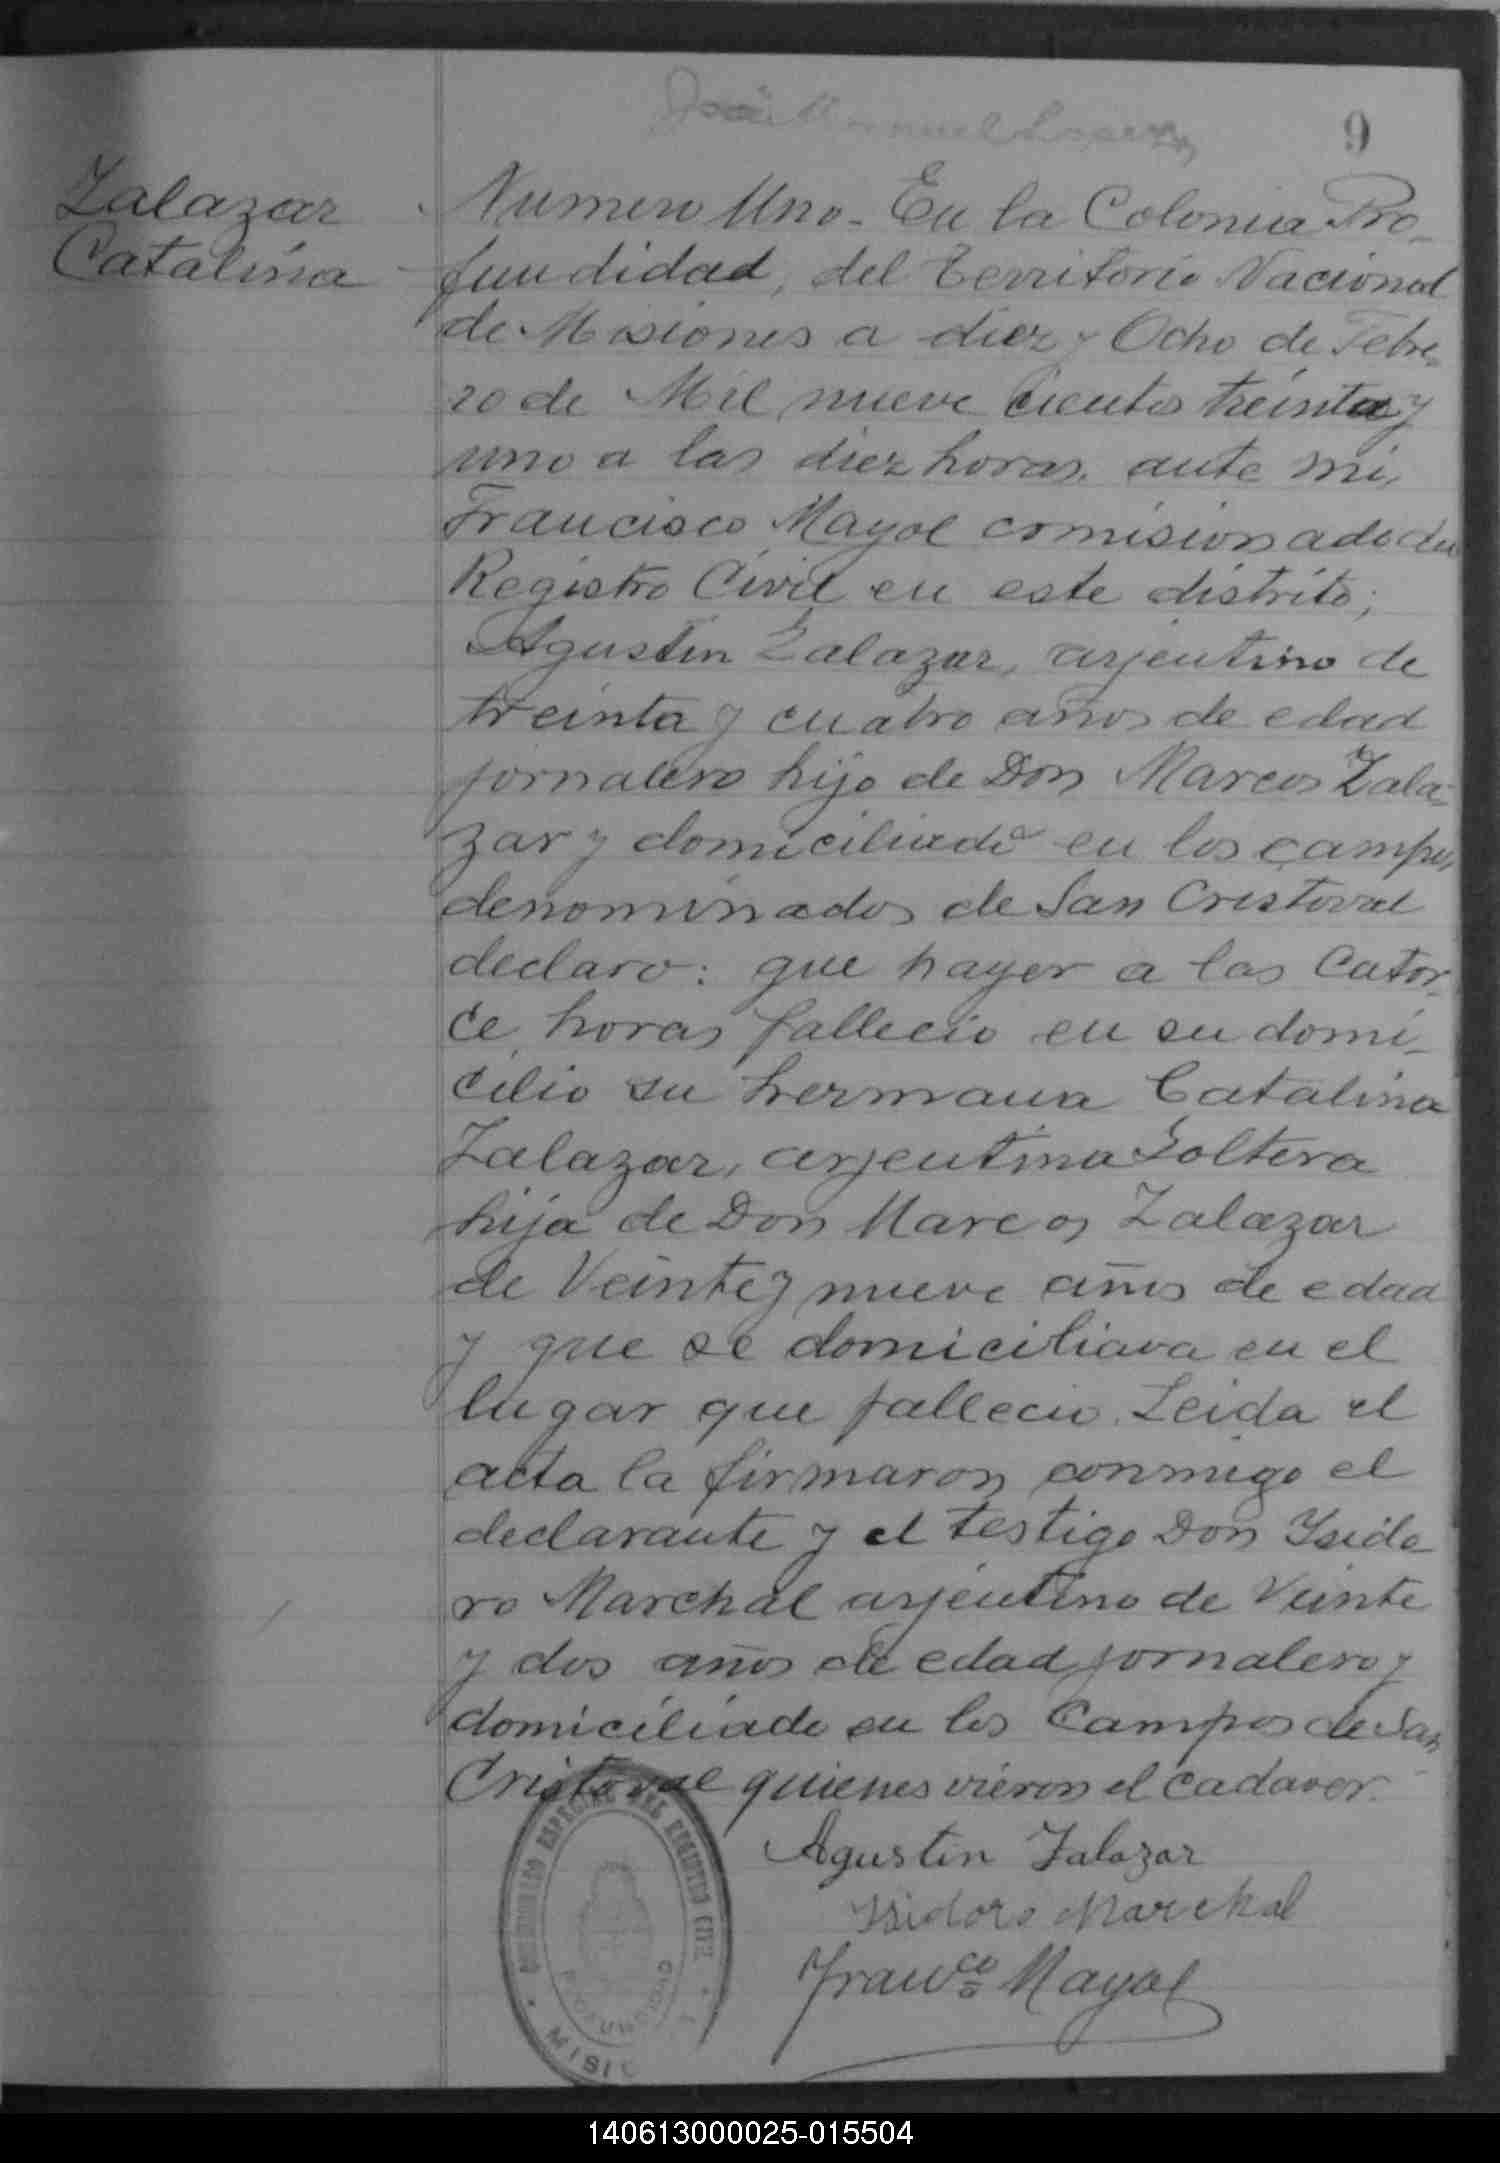 9
Zalazar
Catalina
Numero Uno. En la Colonia Pro-
fundidad, del Territorio Nacional
de Misiones a diez y Ocho de Febre-
ro de Mil nueve cientos treinta y
uno a las diez horas, ante mi,
Francisco Mayol comisionado del
Registro Civil en este distrito;
Agustin Zalazar, arjentino de
treinta y cuatro años de edad
jornalero hijo de Don Marcos Zala-
zar y domiciliado en los campos
denominados de San Cristoval
declaro: que hayer a las Cator-
ce horas fallecio en su domi-
cilio su hermana Catalina
Zalazar, arjentina Soltera
hija de Don Marcos Zalazar
de Veinte y nueve años de edad
y que se domiciliava en el
lugar que fallecio. Leida el
acta la firmaron conmigo el
declarante y el testigo Don Ysido
ro Marchal arjentino de Veinte
y dos años de edad jornalero y
domiciliado en los Campos de San
Cristoval quienes vieron el cadaver.
Agustin Zalazar
Isidoro Marchal
Franco Mayol
ESPECIAL DEL REGISTRO CIVIL
PROFUNDIDAD
MISIO
140613000025-015504